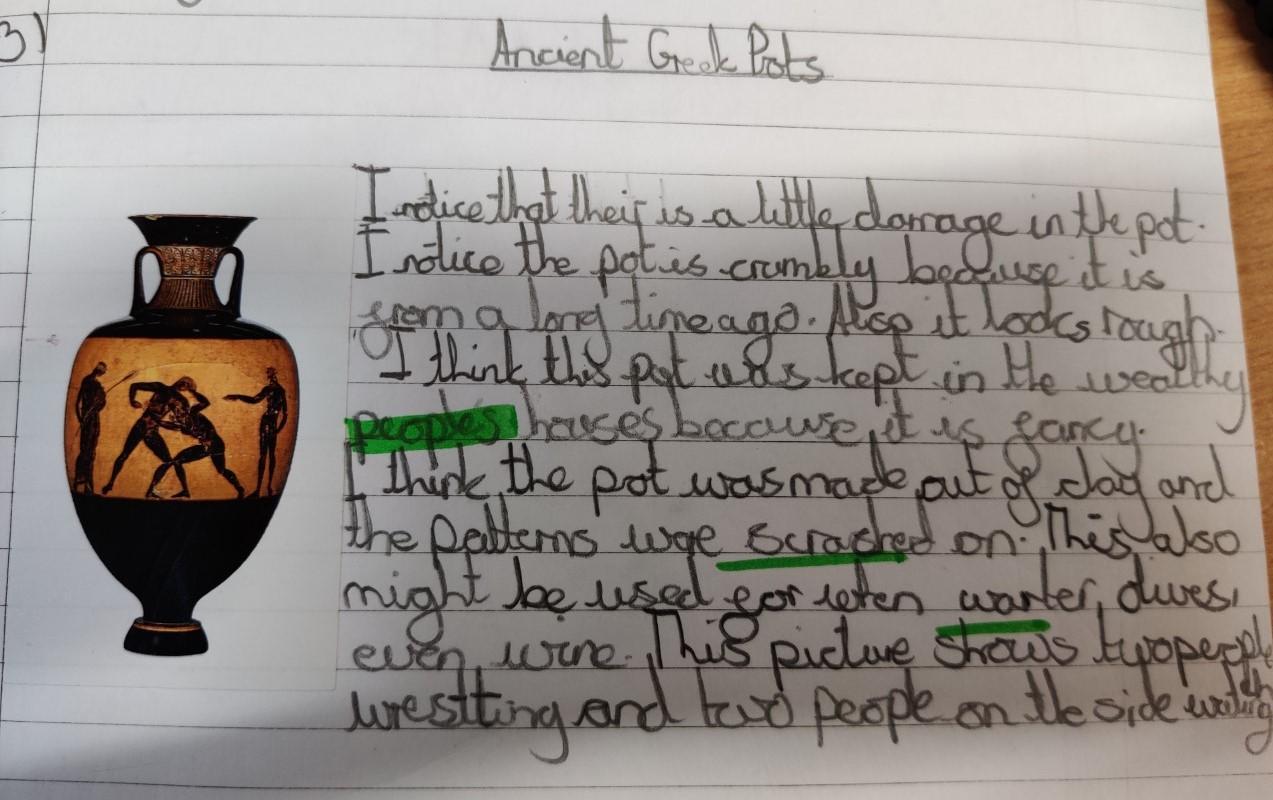 3)
Ancient Greek Pots
I notice that their is a little damage in the pot.
I notice the pot is crumbly because it is
from a long time ago. Also it looks rough.
I think this pot was kept in the wealthy
peoples houses because it is fancy.
I think the pot was made out of clay and
the patterns were scrached on. This also
might be used for warter, olives,
even wine. This picture shows two people
wrestting and two people on the side